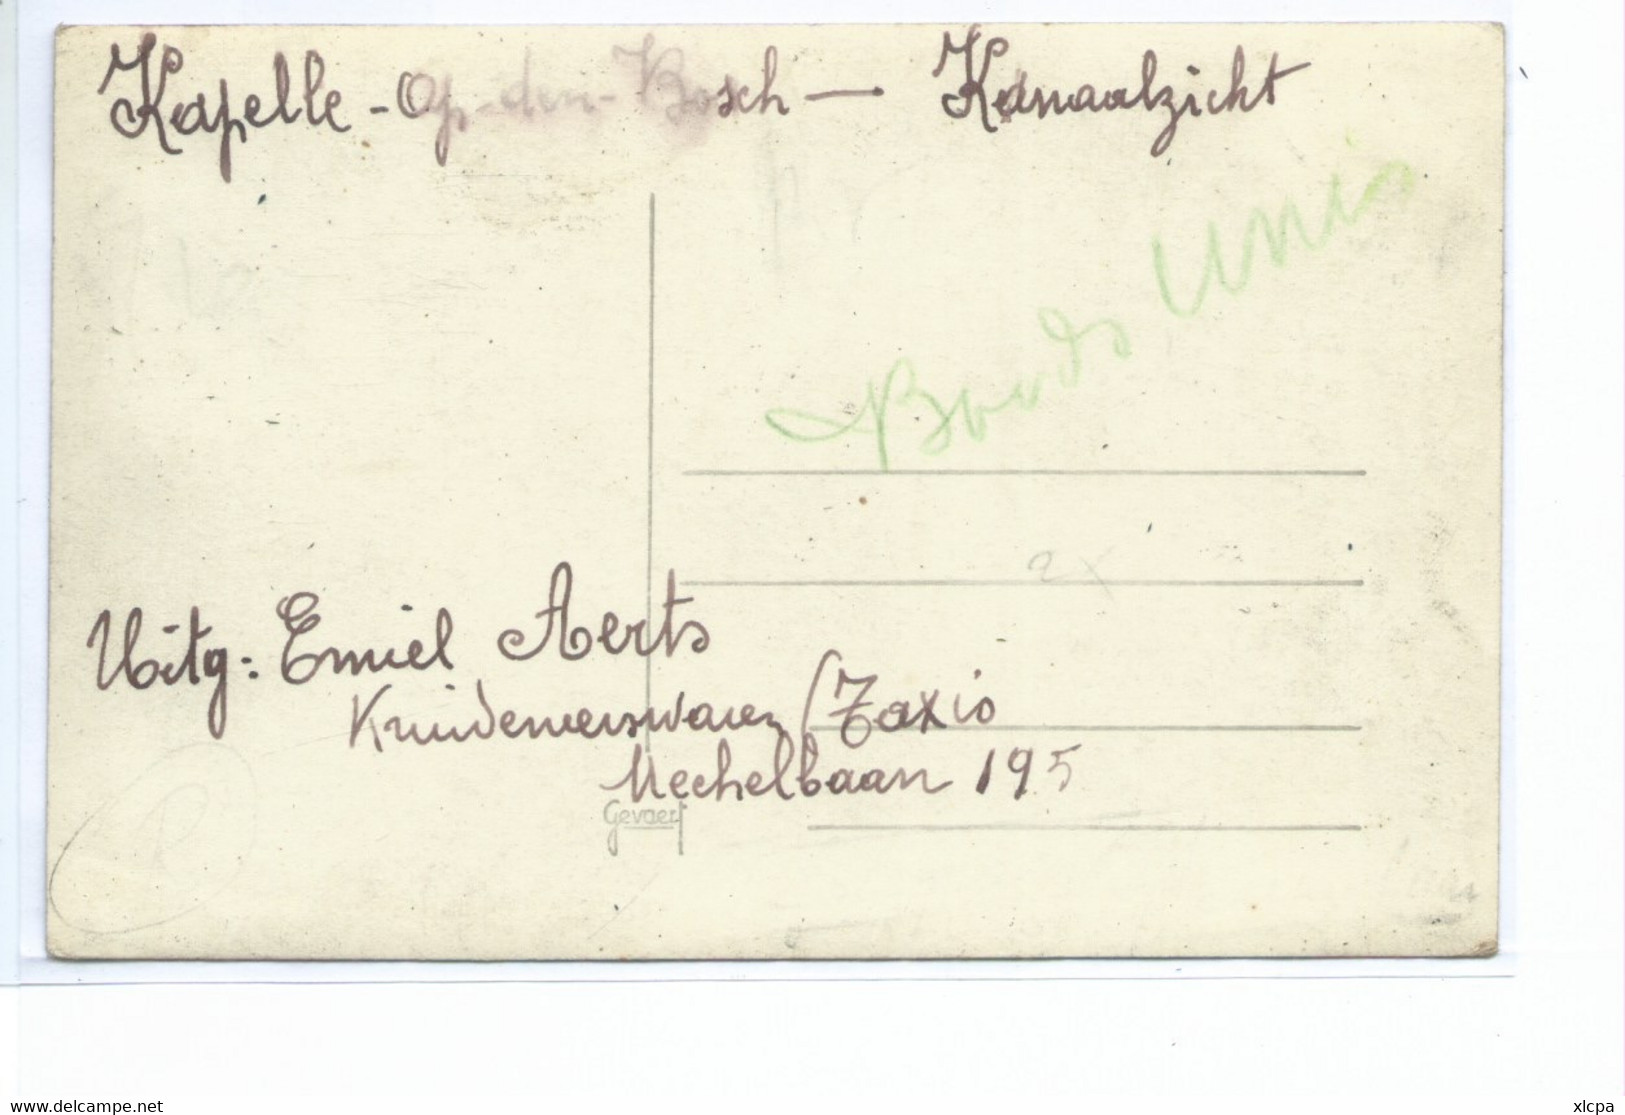 Kapelle - Op-den-Bosch — Kanaalzicht
Bords Unis
2x
Uitg: Emiel Aerts
Kruidenierswaren / Taxis
Mechelbaan 195
Gevaert
www.delcampe.net
xlcpa